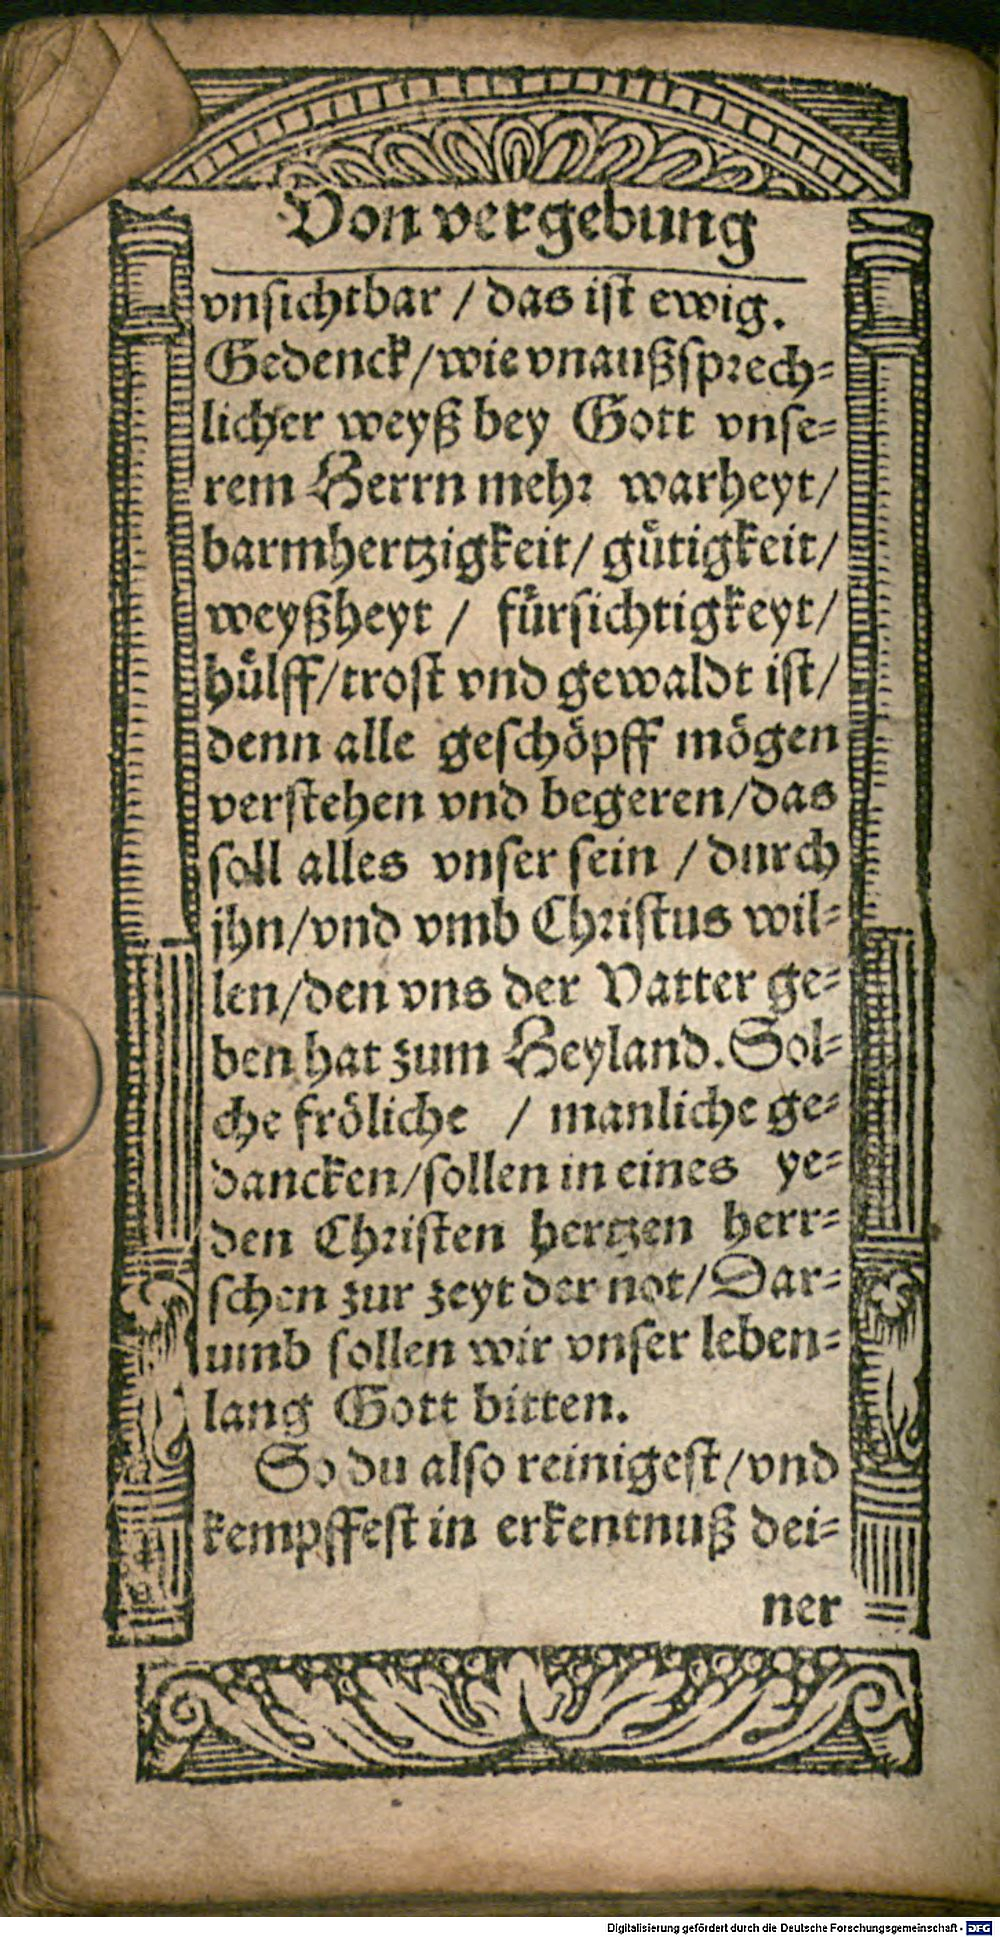 Von vergebung
vnsichtbar / das ist ewig.
Gedenck/wie vnaußsprech-
licher weyß bey Gott vnse-
rem Herrn mehr warheyt/
barmhertzigkeit/ guͤtigkeit/
weyßheyt / fuͤrsichtigkeyt/
huͤlff/trost vnd gewaldt ist/
denn alle geschoͤpff moͤgen
verstehen vnd begeren/das
soll alles vnser sein / durch
jhn/vnd vmb Christus wil-
len/den vns der Vatter ge-
ben hat zum Heyland. Sol-
che froͤliche / manliche ge-
dancken/sollen in eines ye-
den Christen hertzen herr-
schen zur zeyt der not/Dar-
umb sollen wir vnser leben-
lang Gott bitten.
So du also reinigest/vnd
kempffest in erkentnuß dei-
ner
Digitalisierung gefördert durch die Deutsche Forschungsgemeinschaft - DFG